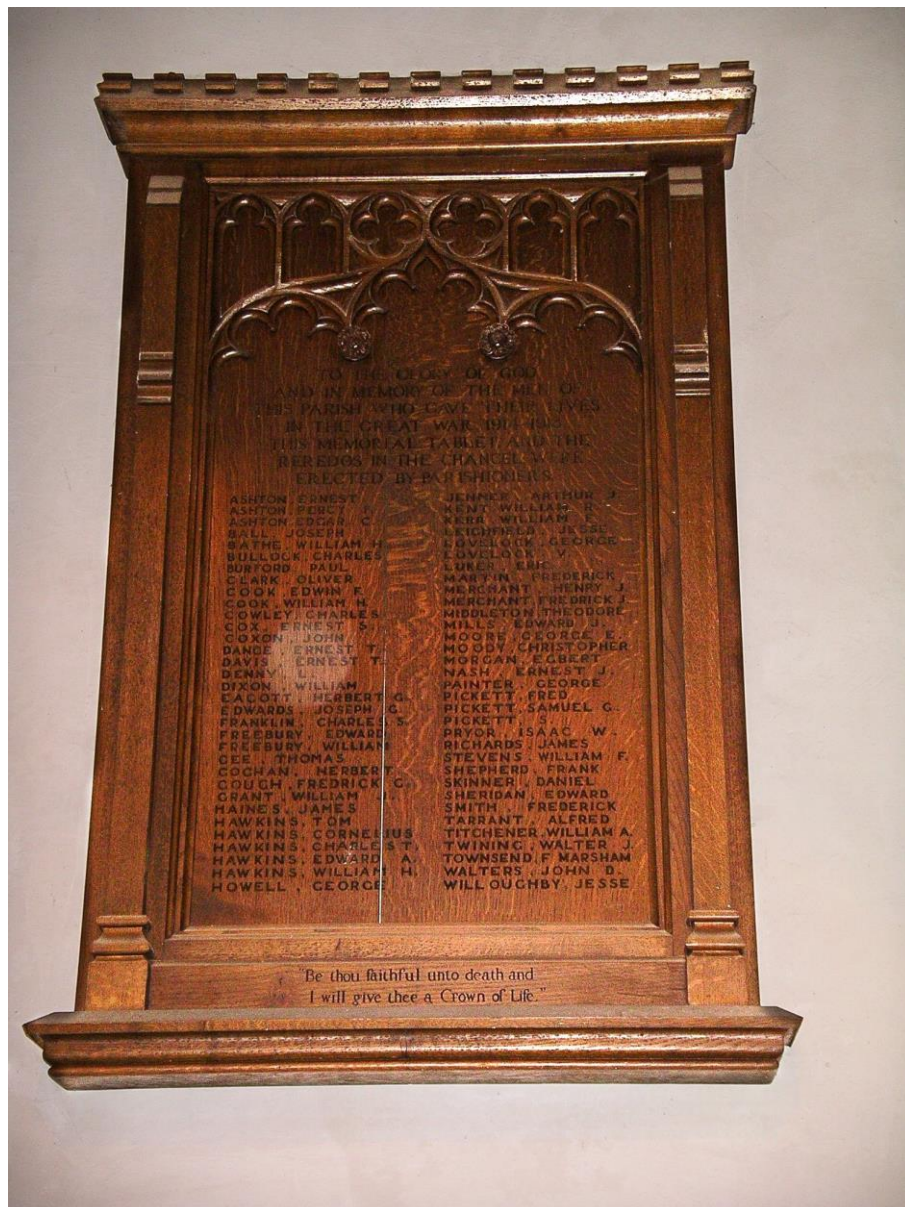 TO THE GLORY OF GOD
AND IN MEMORY OF THE MEN OF
THIS PARISH WHO GAVE THEIR LIVES
IN THE GREAT WAR 1914-1918
THIS MEMORIAL TABLET AND THE
REREDOS IN THE CHANCEL WERE
ERECTED BY PARISHIONERS.
ASHTON, ERNEST
ASHTON, PERCY F.
ASHTON, EDGAR C.
BALL, JOSEPH
BATHE, WILLIAM H.
BULLOCK, CHARLES
BURFORD, PAUL
CLARK, OLIVER
COOK, EDWIN F.
COOK, WILLIAM H.
COWLEY, CHARLES
COX, ERNEST S.
COXON, JOHN
DANCE, ERNEST T.
DAVIS, ERNEST T.
DENNY, L.
DIXON, WILLIAM
EAGOTT, HERBERT G.
EDWARDS, JOSEPH G.
FRANKLIN, CHARLES S.
FREEBURY, EDWARD
FREEBURY, WILLIAM
GEE, THOMAS
HERBERT
GOUGH, FREDRICK G.
GRANT, WILLIAM
HAINES, JAMES
HAWKINS, TOM
HAWKINS, CORNELIUS
HAWKINS, CHARLES T.
HAWKINS, EDWARD A.
HAWKINS, WILLIAM H.
HOWELL, GEORGE
JENNER, ARTHUR J.
KENT, WILLIAM R.
KERR, WILLIAM
LEICHFIELD, JESSE
LOVELOCK, GEORGE
LOVELOCK, V.
LUKER, ERIC
MARTIN, FREDERICK
MERCHANT, HENRY J.
MERCHANT, FREDRICK J.
MIDDLETON, THEODORE
MILLS, EDWARD J.
MOORE, GEORGE E.
MOODY, CHRISTOPHER
MORGAN, EGBERT
NASH, ERNEST J.
PAINTER, GEORGE
PICKETT, FRED
PICKETT, SAMUEL G.
PICKETT, S.
PRYOR, ISAAC W.
RICHARDS, JAMES
STEVENS, WILLIAM F.
SHEPHERD, FRANK
SKINNER, DANIEL
SHERIDAN, EDWARD
SMITH, FREDERICK
TARRANT, ALFRED
TITCHENER, WILLIAM A.
TWINING, WALTER J.
TOWNSEND, F. MARSHAM
WALTERS, JOHN D.
WILLOUGHBY, JESSE
"Be thou faithful unto death and
I will give thee a Crown of Life."